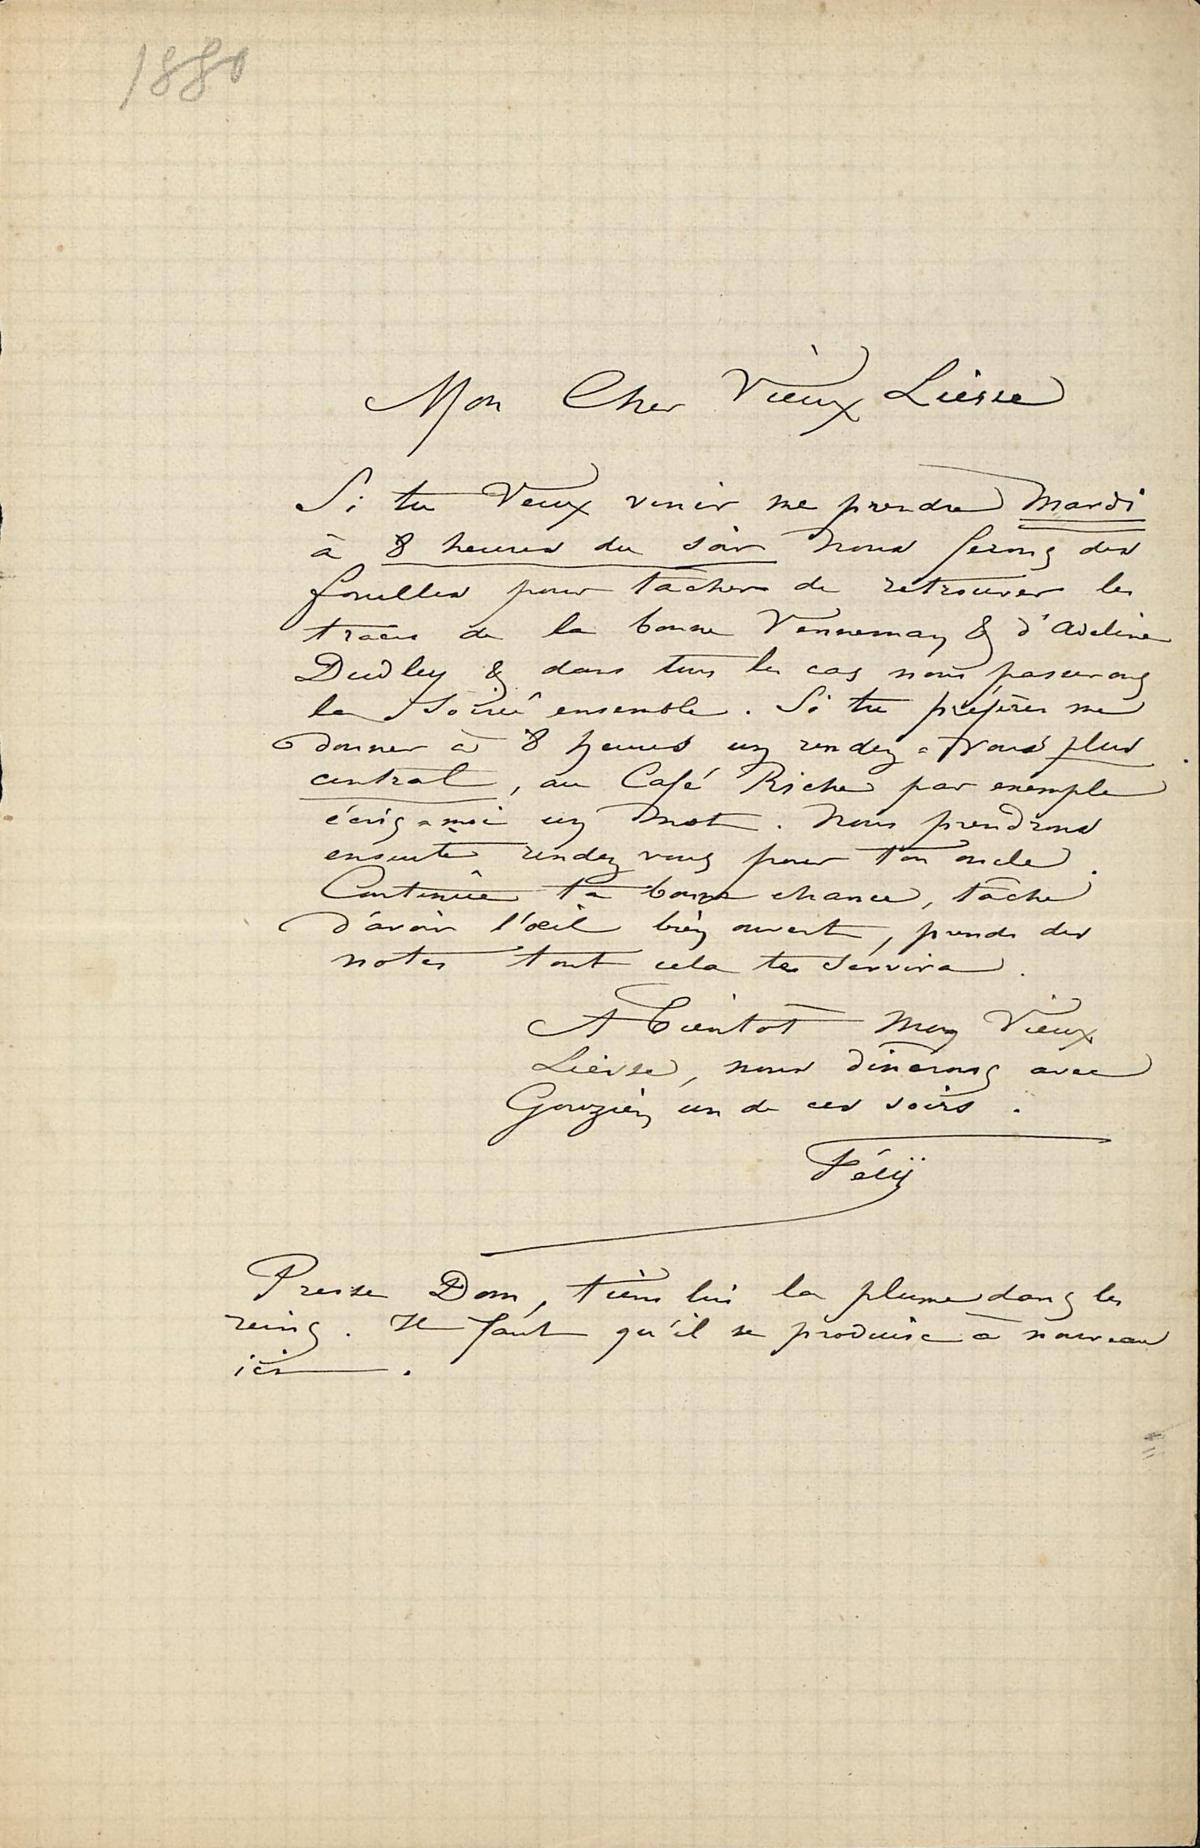 1880
Mon Cher Vieux Liesse
Si tu Veux venir me prendre Mardi
à 8 heures du soir nous ferons des
fouilles pour tâcher de retrouver les
traces de la bonne & d'Adeline
Dudley & dans tous les cas nous passerons
la Soirée ensemble. Si tu préfères me
donner à 8 heures un rendez-vous plus
central, au Café Riche par exemple
écris-moi un mot. Nous prendrons
ensuite rendez vous pour ton oncle.
Continue ta bonne chance, tâche
d'avoir l'œil bien ouvert, prends des
notes tout cela te servira.
A Bientôt Mon Vieux
Liesse, nous dinerons avec
Gouzien un de ces soirs.
Fély
Presse Dom, tiens lui la plume dans les
reins. Il faut qu'il se produise à nouveau
ici.